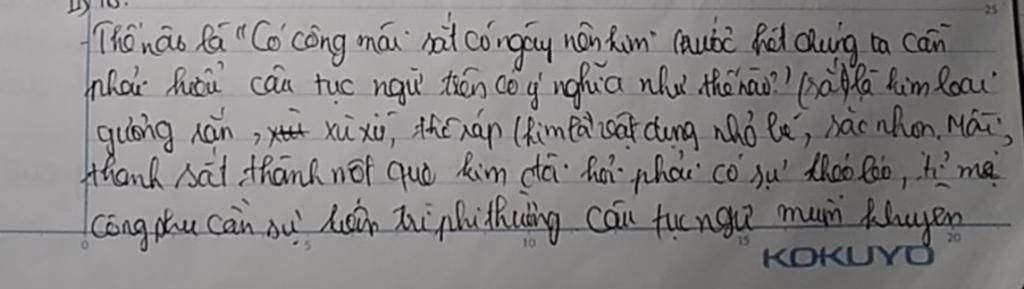 Thế nào là "Có công mài sắt có ngày nên kim" trước hết chúng ta cần
phải hiểu câu tục ngữ trên có ý nghĩa như thế nào? sắt là kim loại
cứng rắn, xù xì, thô ráp kim là vật dụng nhỏ bé, sắc nhọn. Mài
thanh sắt thành một que kim đòi hỏi phải có sự khéo léo, tỉ mỉ
công phu cần sự kiên trì phi thường. Câu tục ngữ muốn khuyên
KOKUYO
0 5 10 15 20
25